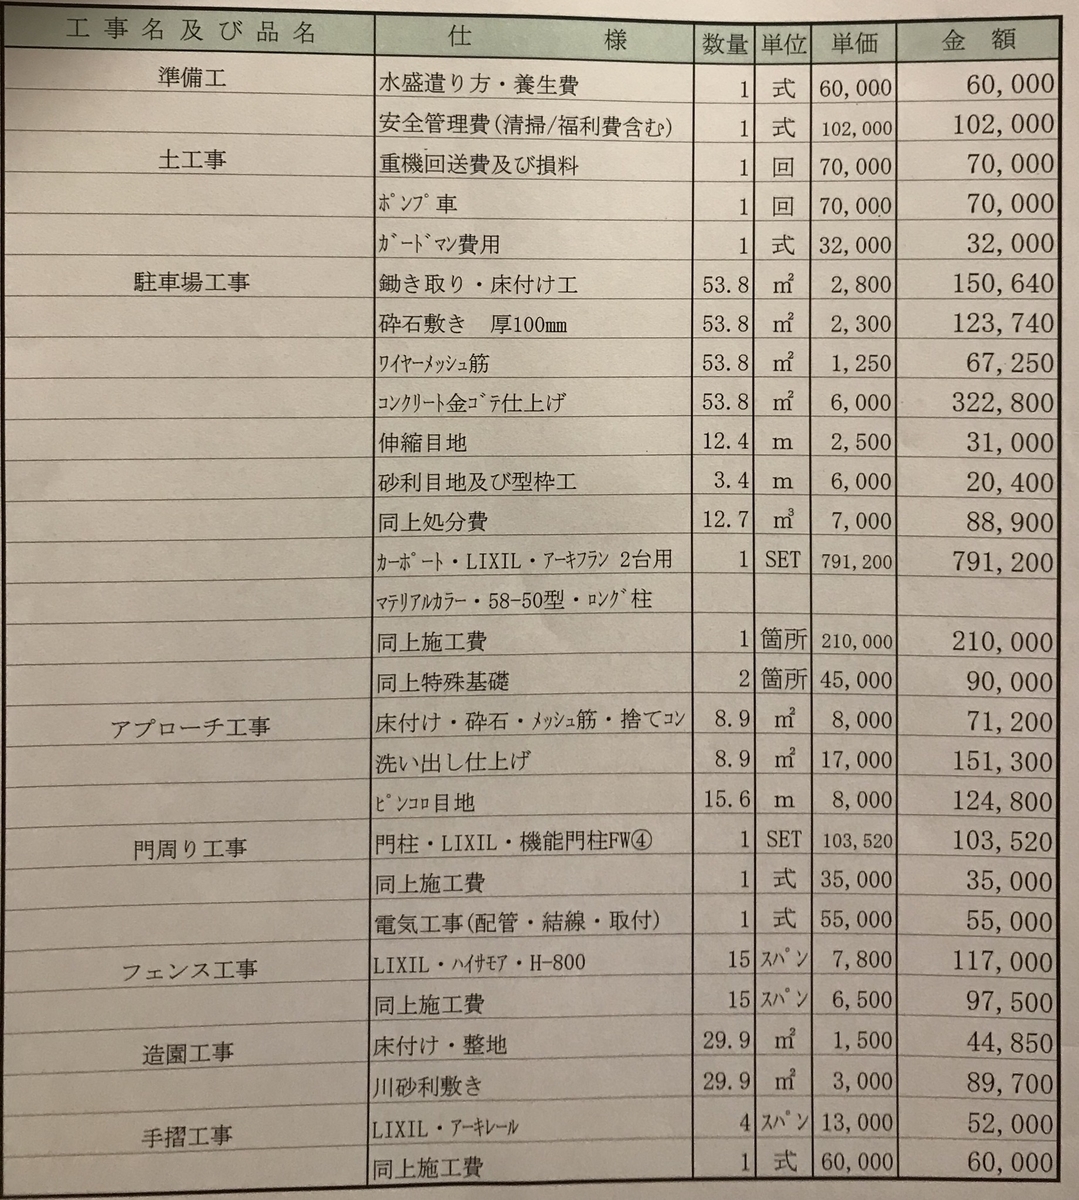 工事名及び品名 仕様 数量 単位 単価 金額
準備工 水盛遣り方・養生費 1 式 60,000 60,000
安全管理費(清掃/福利費含む) 1 式 102,000 102,000
土工事 重機回送費及び損料 1 回 70,000 70,000
ﾎﾟﾝﾌﾟ車 1 回 70,000 70,000
ｶﾞｰﾄﾞﾏﾝ費用 1 式 32,000 32,000
駐車場工事 鋤き取り・床付け工 53.8 ㎡ 2,800 150,640
砕石敷き 厚100㎜ 53.8 ㎡ 2,300 123,740
ﾜｲﾔｰﾒｯｼｭ筋 53.8 ㎡ 1,250 67,250
ｺﾝｸﾘｰﾄ金ｺﾞﾃ仕上げ 53.8 ㎡ 6,000 322,800
伸縮目地 12.4 m 2,500 31,000
砂利目地及び型枠工 3.4 m 6,000 20,400
同上処分費 12.7 ㎥ 7,000 88,900
ｶｰﾎﾟｰﾄ・LIXIL・ｱｰｷﾌﾗﾝ 2台用 1 SET 791,200 791,200
ﾏﾃﾘｱﾙｶﾗｰ・58-50型・ﾛﾝｸﾞ柱
同上施工費 1 箇所 210,000 210,000
同上特殊基礎 2 箇所 45,000 90,000
アプローチ工事 床付け・砕石・ﾒｯｼｭ筋・捨てｺﾝ 8.9 ㎡ 8,000 71,200
洗い出し仕上げ 8.9 ㎡ 17,000 151,300
ﾋﾟﾝｺﾛ目地 15.6 m 8,000 124,800
門周り工事 門柱・LIXIL・機能門柱FW④ 1 SET 103,520 103,520
同上施工費 1 式 35,000 35,000
電気工事(配管・結線・取付) 1 式 55,000 55,000
フェンス工事 LIXIL・ﾊｲｻﾓｱ・H-800 15 ｽﾊﾟﾝ 7,800 117,000
同上施工費 15 ｽﾊﾟﾝ 6,500 97,500
造園工事 床付け・整地 29.9 ㎡ 1,500 44,850
川砂利敷き 29.9 ㎡ 3,000 89,700
手摺工事 LIXIL・ｱｰｷﾚｰﾙ 4 ｽﾊﾟﾝ 13,000 52,000
同上施工費 1 式 60,000 60,000